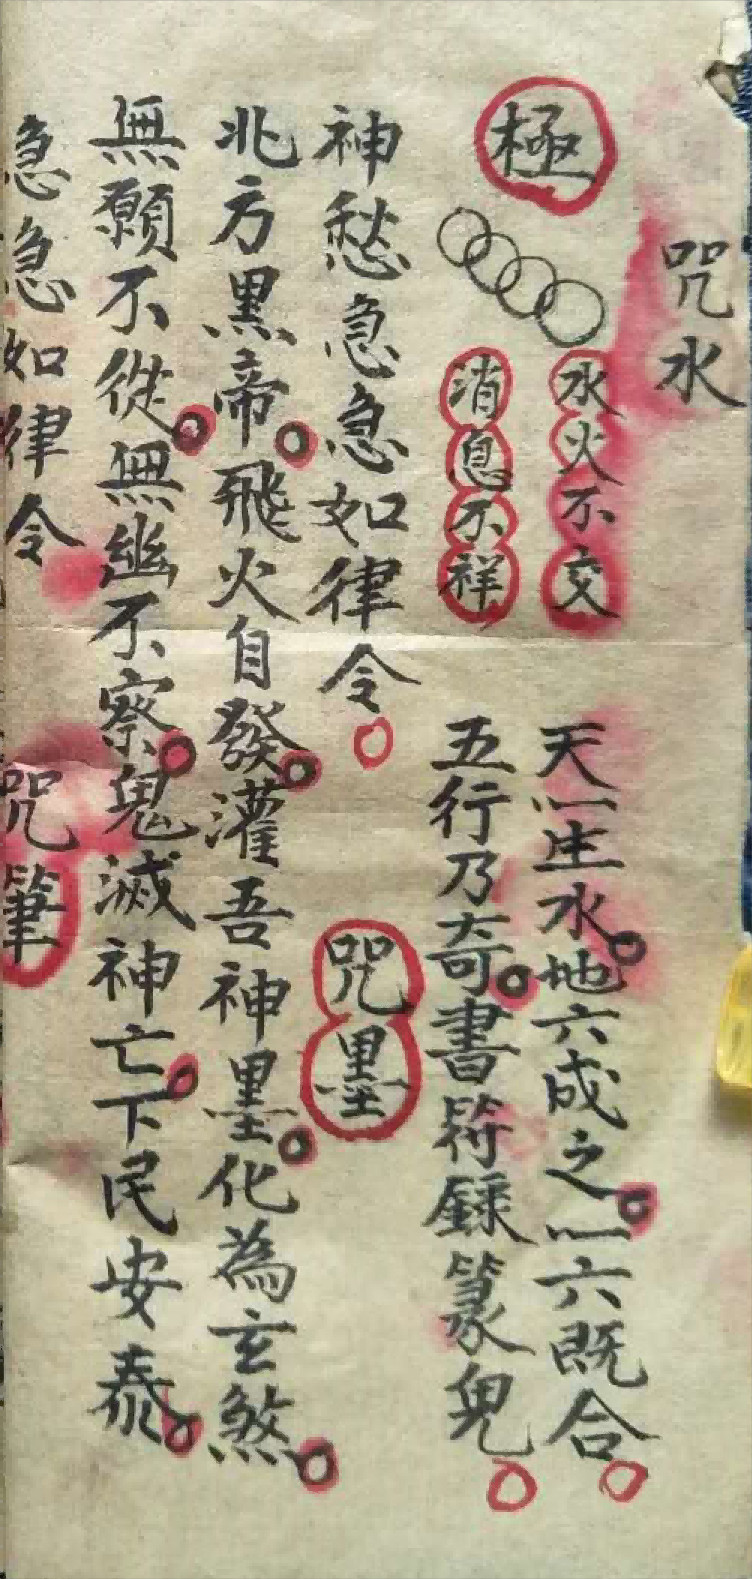 咒水
極
水火不交
消息不祥
天一生水。地六成之。一六既合。
五行乃奇。書符錄篆鬼。
神愁急急如律令。
咒墨
北方黑帝。飛火自發。灌吾神墨。化為玄煞。
無願不從。無幽不察。鬼滅神亡。下民安泰。
急急如律令
咒筆